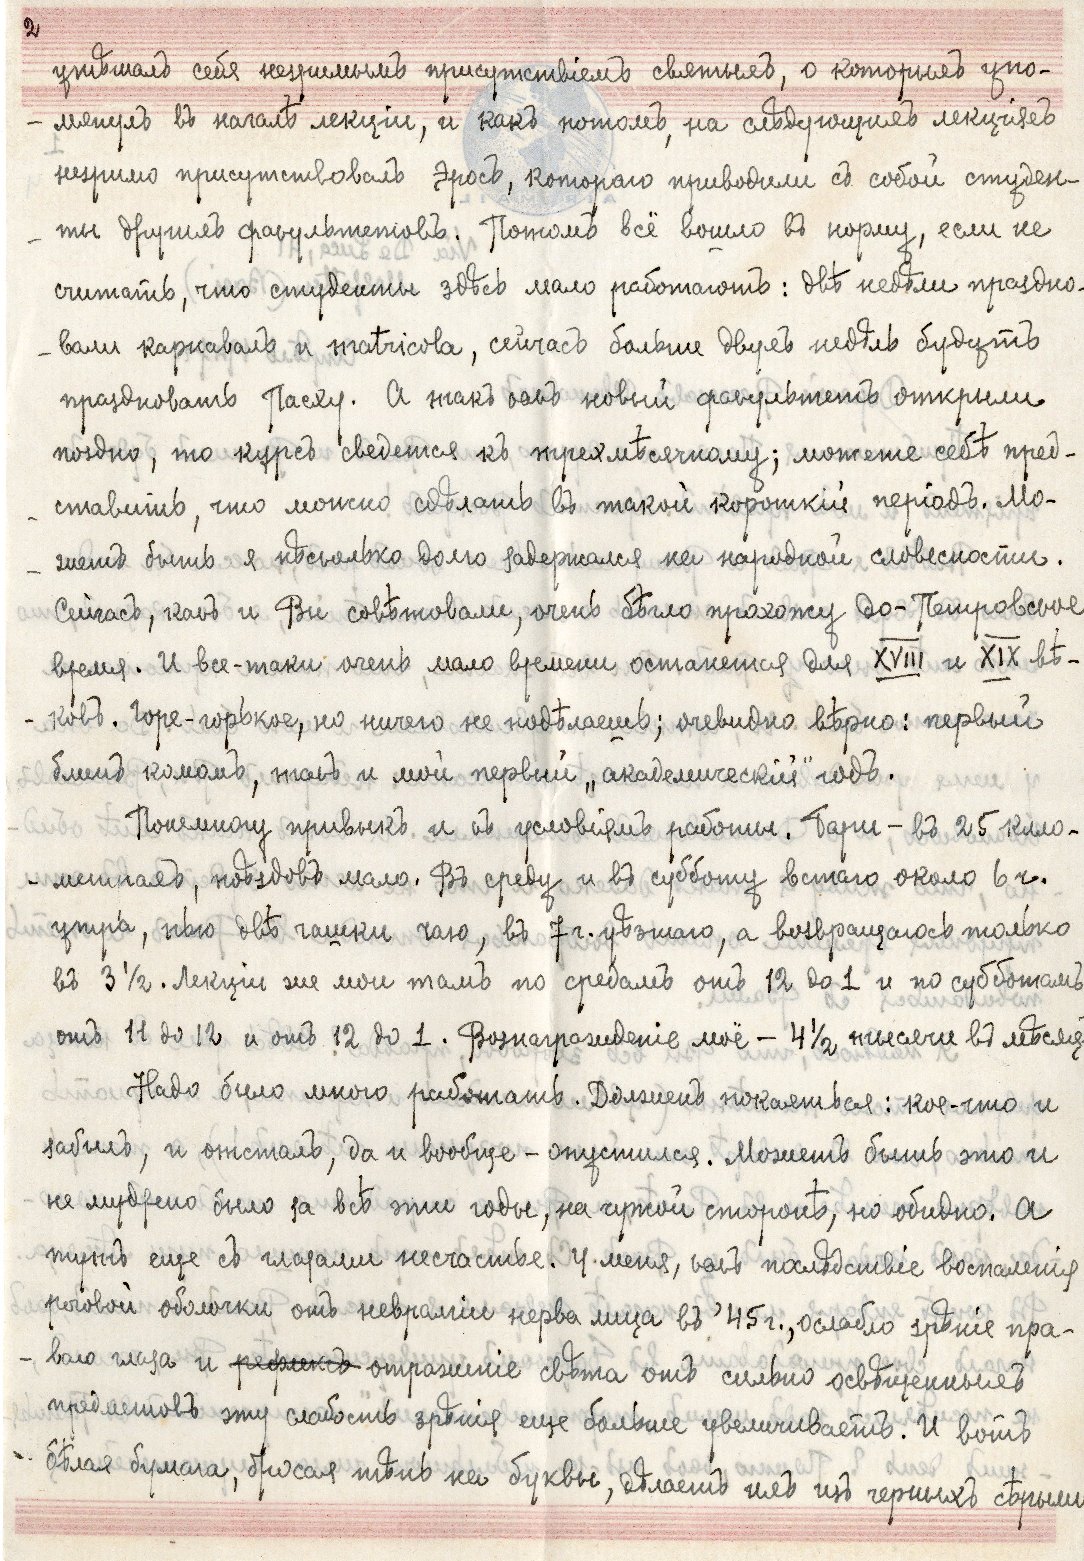 2
утѣшалъ себя незримымъ присутствіемъ святыхъ, о которыхъ упо-
- мянулъ въ началѣ лекціи, и какъ потомъ, на слѣдующихъ лекціяхъ
незримо присутствовалъ Эросъ, котораго приводили съ собой студен-
- ты другихъ факультетовъ. Потомъ всё вошло въ норму, если не
считать, что студенты здѣсь мало работаютъ: двѣ недѣли праздно-
- вали карнавалъ и matricola, сейчасъ больше двухъ недѣль будутъ
праздновать Пасху. А такъ какъ новый факультетъ открыли
поздно, то курсъ сведется къ трехмѣсячному; можете себѣ пред-
- ставить, что можно сдѣлать въ такой короткій періодъ. Мо-
- жетъ быть я нѣсколько долго задержался на народной словесности.
Сейчасъ, какъ и Вы совѣтовали, очень бѣгло прохожу до-Петровское
время. И все-таки очень мало времени останется для XVIII и XIX вѣ-
- ковъ. Горе-горькое, но ничего не подѣлаешь; очевидно вѣрно: первый
блинъ комомъ, такъ и мой первый „академическій" годъ.
Понемногу привыкъ и къ условіямъ работы. Бари – въ 25 кило-
- метрахъ, поѣздовъ мало. Въ среду и въ субботу встаю около 6 ч.
утра, пью двѣ чашки чаю, въ 7 ч. уѣзжаю, а возвращаюсь только
въ 3 1/2. Лекціи же мои тамъ по средамъ отъ 12 до 1 и по субботамъ
отъ 11 до 12 и отъ 12 до 1. Вознагражденіе моё – 4 1/2 тысячи въ мѣсяцъ
Надо было много работать. Долженъ покаяться: кое-что и
забылъ, и отсталъ, да и вообще – опустился. Можетъ быть это и
не мудрено было за всѣ эти годы, на чужой сторонѣ, но обидно. А
тутъ еще съ глазами несчастье. У меня, какъ послѣдствіе воспаленія
роговой оболочки отъ невралгіи нерва лица въ '45 г., ослабло зрѣніе пра-
- ваго глаза и отраженіе свѣта отъ сильно освѣщенныхъ
предметовъ эту слабость зрѣнія еще больше увеличиваетъ. И вотъ
- бѣлая бумага, бросая тѣнь на буквы, дѣлаетъ ихъ изъ черныхъ сѣрыми